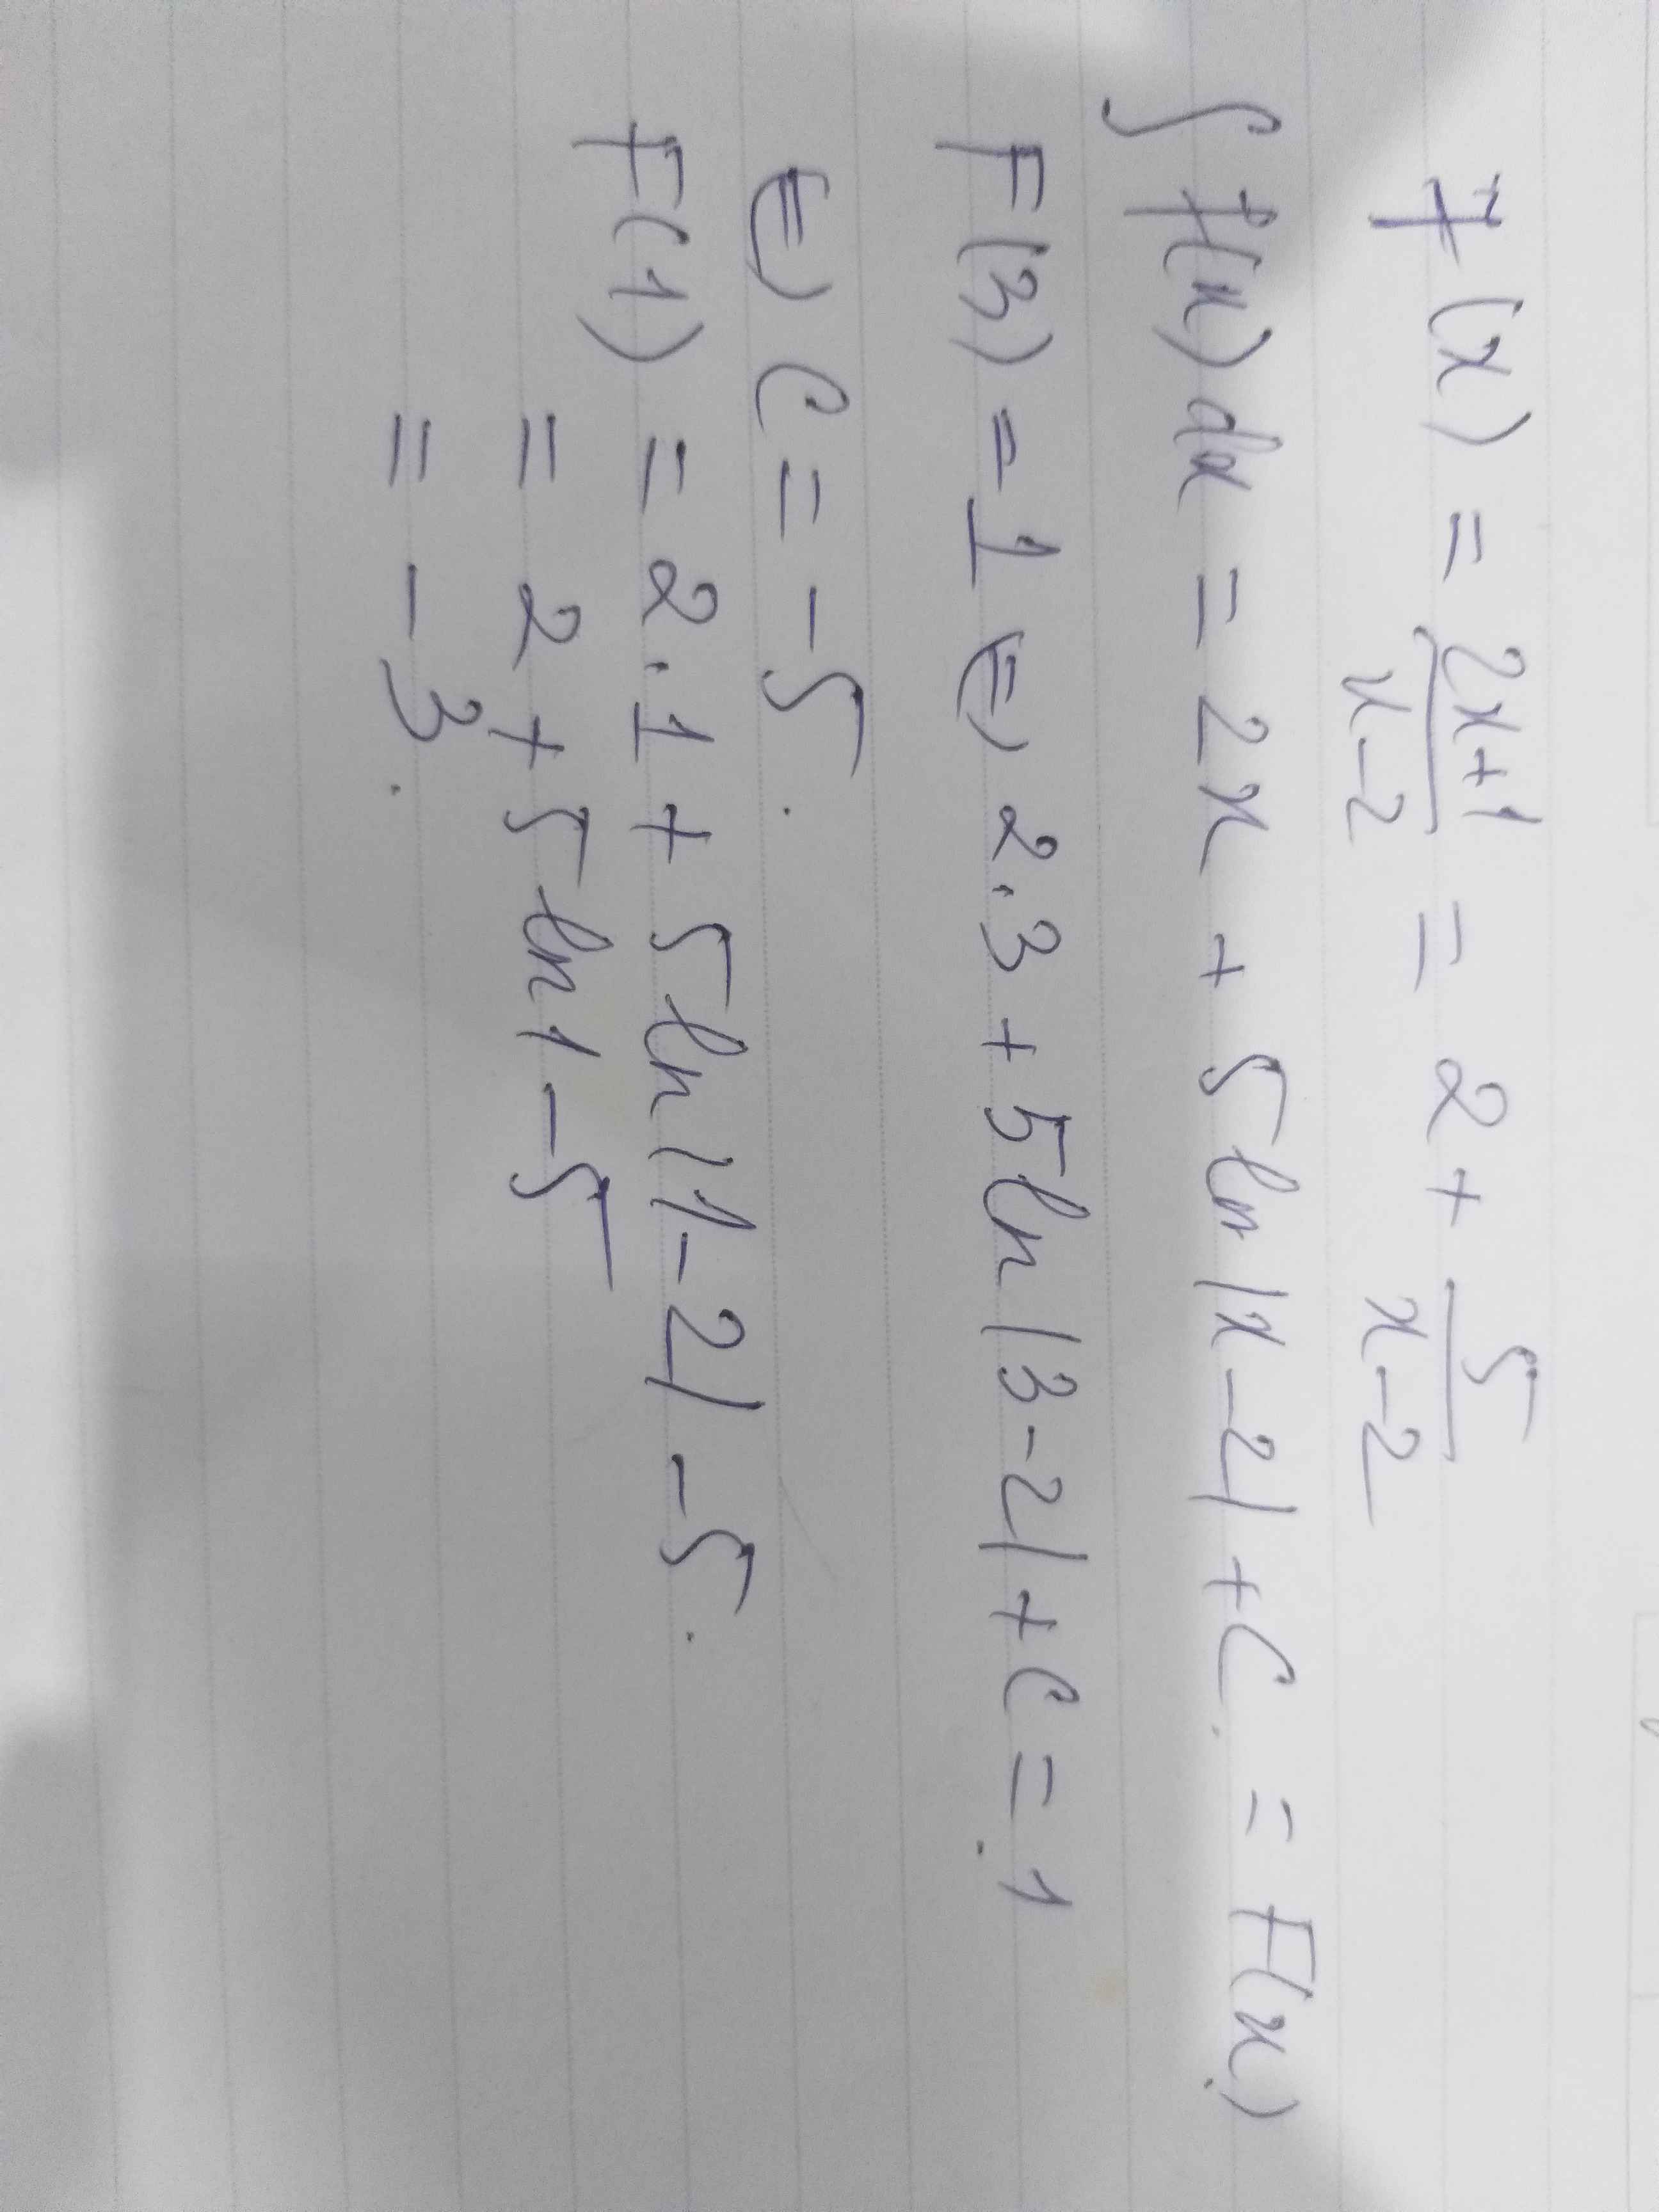 f(x) = \frac{2x+1}{x-2} = 2 + \frac{5}{x-2}
∫ f(x) dx = 2x + 5 ln |x-2| + C. = F(x)
F(3) = 1 ⇔ 2.3 + 5 ln |3-2| + C = 1
⇔ C = -5.
F(1) = 2.1 + 5 ln |1-2| - 5.
= 2 + 5 ln 1 - 5
= -3.